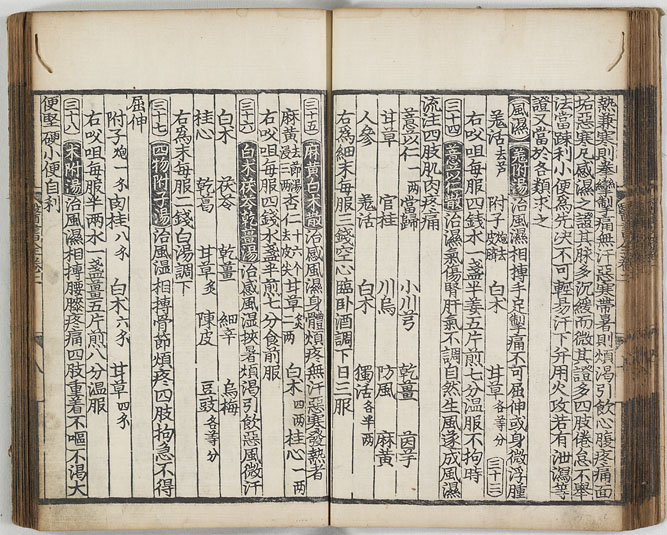 熱兼寒則拳攣掣痛無汗惡寒帶暑則煩渴引飲心腹疼痛面
垢惡寒凡感濕之證其脉多沉緩而微其證多四肢倦怠不舉
法當踈利小便為先決不可輕易汗下并用火攻若有泄瀉等
證又當於各類求之
風濕 羗附湯 治風濕相摶手足掣痛不可屈伸或身微浮腫
羗活去芦 附子炮去皮臍 白术 甘草各等分 三十三
右㕮咀每服四錢水一盞半姜五片煎七分温服不拘時
三十四 薏苡仁散 治濕氣傷腎肝氣不調自然生風遂成風濕
流注四肢肌肉疼痛
薏苡仁一兩 當歸 小川芎 乾薑 茵芋
甘草 官桂 川烏 防風 麻黄
人參 羗活 白术 獨活各半兩
右為細末每服三錢空心臨卧酒調下日三服
三十五 麻黄白术散 治感風濕身體煩疼無汗惡寒發熱者
麻黄 杏仁二十六个去皮尖 甘草炙二兩 白术四兩 桂心一兩
右㕮咀每服四錢水一盞半煎七分食前服
三十六 白术茯苓乾薑湯 治感風温挾暑煩渴引飲惡風微汗
白术 茯苓 乾薑 細辛 烏梅
桂心 乾葛 甘草炙 陳皮 豆豉各等分
右為末每服二錢白湯調下
三十七 四物附子湯 治風温相摶骨節煩疼四肢拘急不得
屈伸
附子炮一个 肉桂八分 白术六分 甘草四分
右㕮咀每服半兩水一盞薑五片煎八分温服
三十八 术附湯 治風濕相摶腰膝疼痛四肢重着不嘔不渴大
便堅硬小便自利